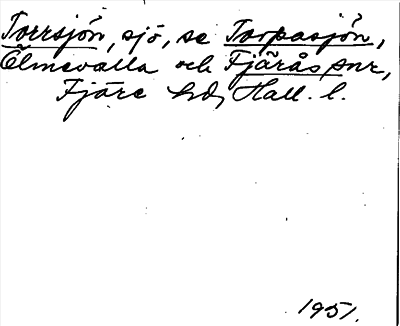 Torrsjön, sjö, se Torpasjön,
Ölmevalla och Fjärås snr,
Fjäre hd, Hall. l.
1951.